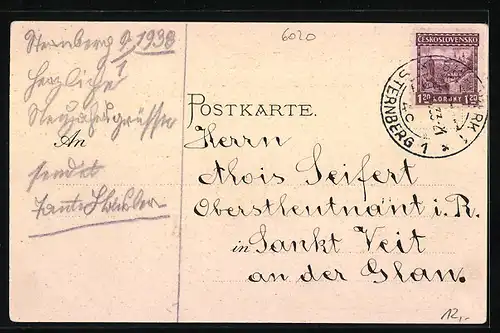 Sternberg 9/1 1938
Herzliche
Neujahrsgrüsse
sendet
Tante
6020
POSTKARTE.
An
Herrn
Alois Seifert
Oberstleutnant i. R.
in Sankt Veit
an der Glan.
ČESKOSLOVENSKO
1.20 KORUNY 1.20
STERNBERG 1
12,-